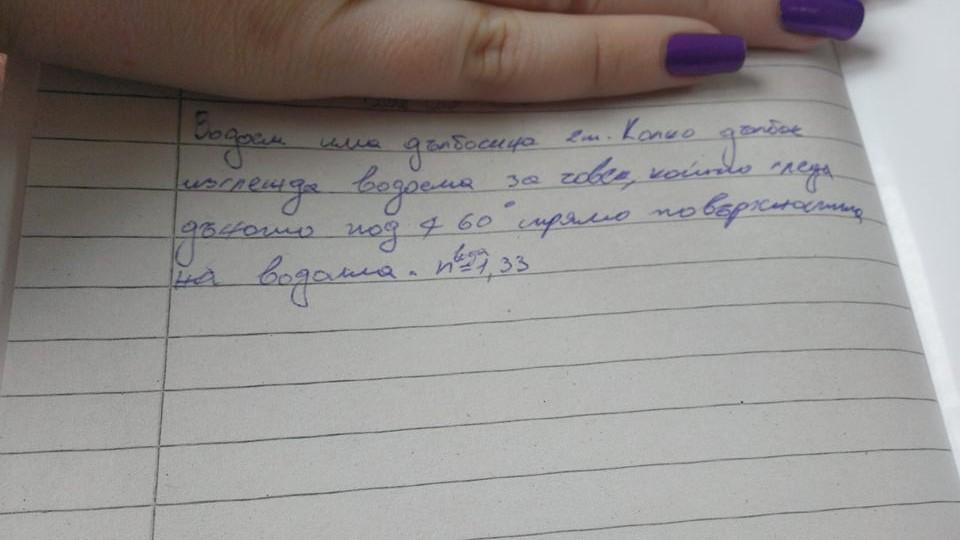 Водоем има дълбочина 2m. Колко дълбок
изглежда водоема за човек, който гледа
дъното под ∢ 60° спрямо повърхността
на водата. n вода = 1,33